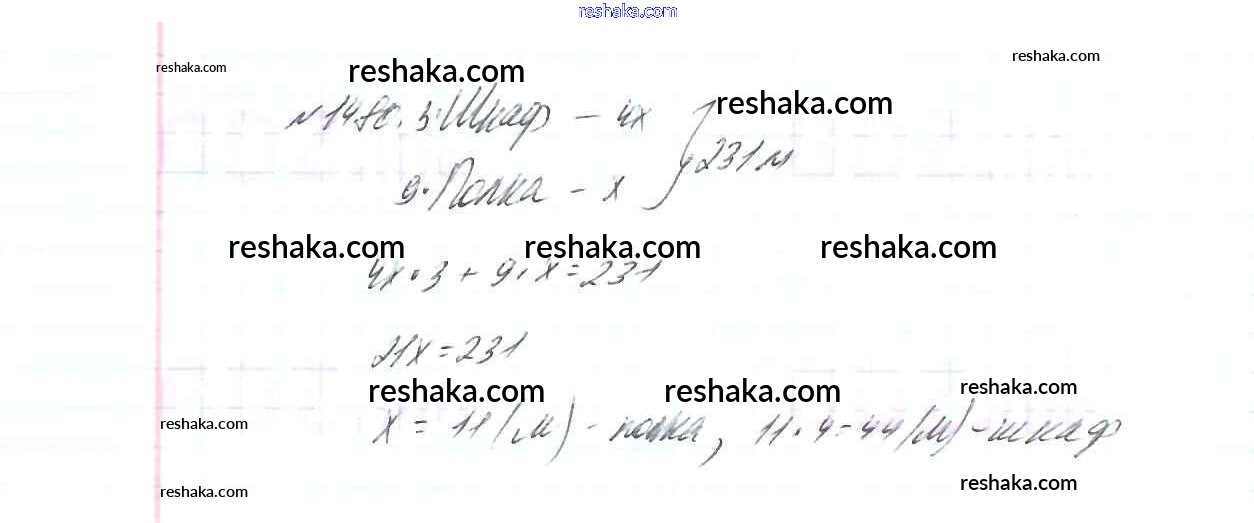 reshaka.com
reshaka.com
reshaka.com
reshaka.com
reshaka.com
3. Шкаф – 4x
} 231 м
9. Полка – x
reshaka.com reshaka.com reshaka.com
4x • 3 + 9 • x = 231
21x = 231
reshaka.com reshaka.com reshaka.com
reshaka.com
x = 11 (м) - полка, 11 • 4 = 44 (м) - шкаф
reshaka.com
reshaka.com